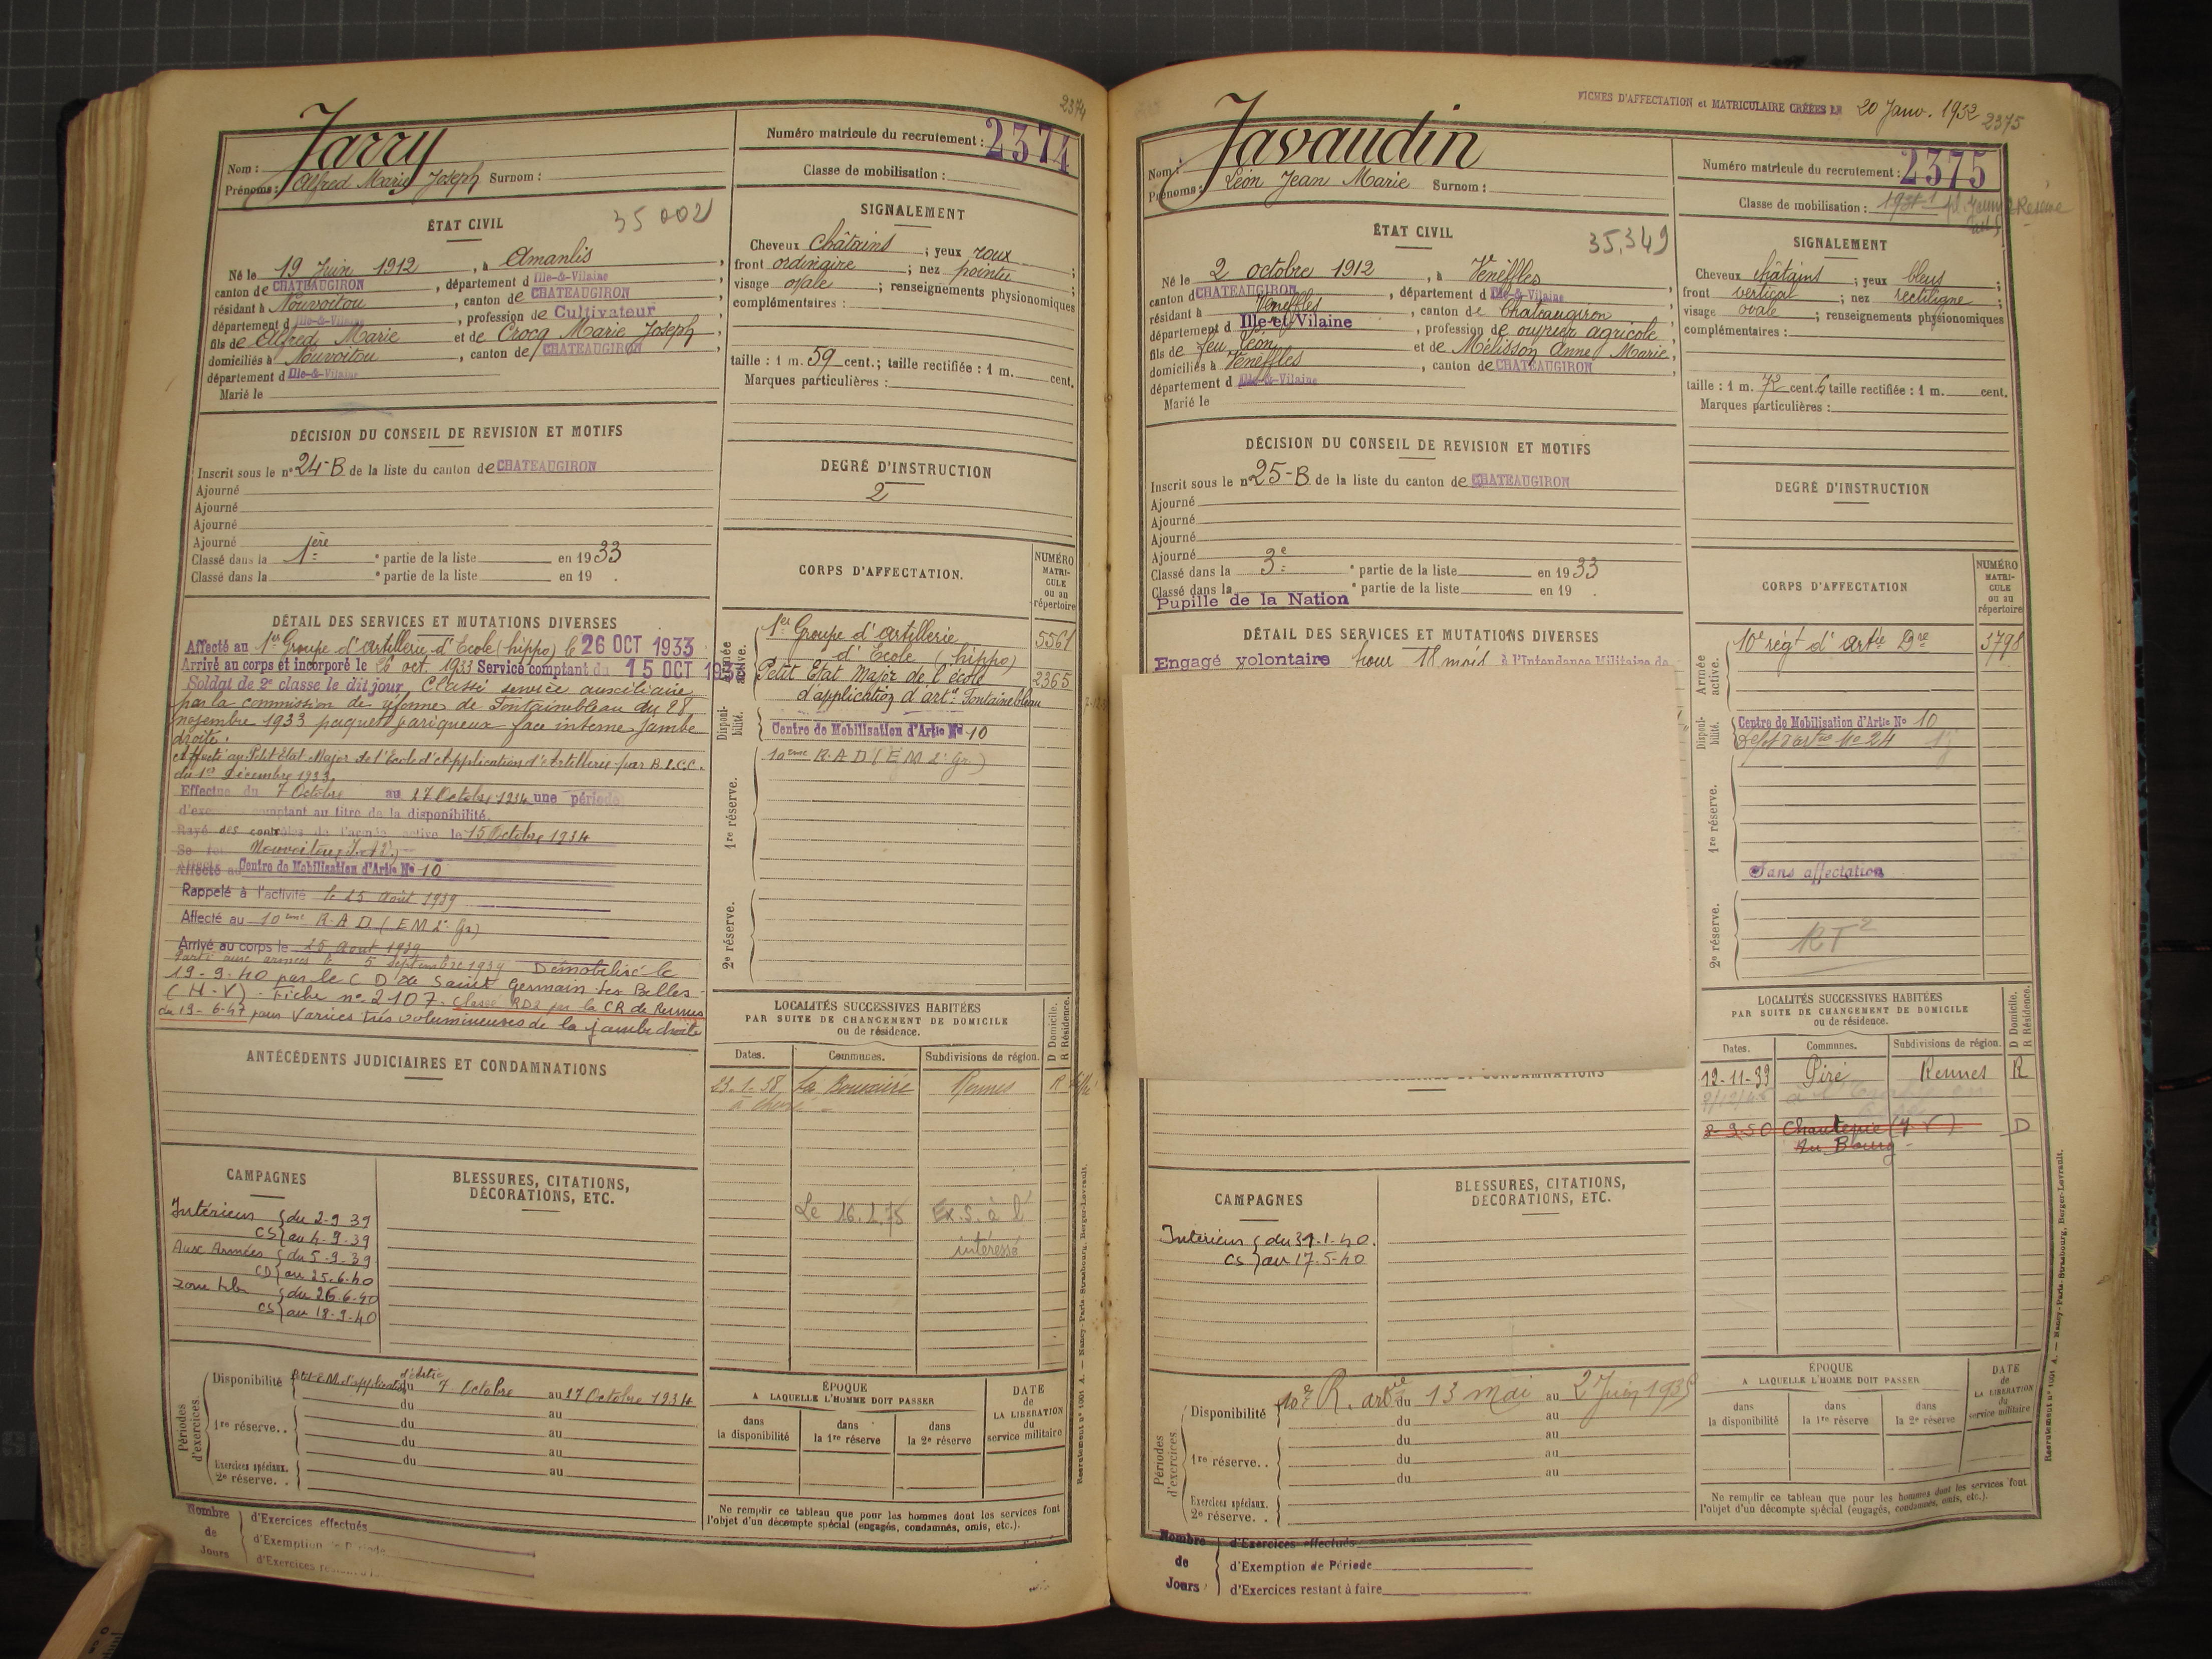 2374
Jarry
Nom :
Prénoms : Alfred Marie Joseph Surnom :
Numéro matricule du recrutement : 2374
Classe de mobilisation :
ÉTAT CIVIL
35002
Né le 19 Juin 1912, à Amanlis,
canton de CHATEAUGIRON, département d Ille-&-Vilaine
résidant à Nouvoitou, canton de CHATEAUGIRON,
département d Ille-&-Vilaine, profession de Cultivateur
fils de Alfred Marie et de Crocq Marie Joseph,
domiciliés à Nouvoitou, canton de CHATEAUGIRON,
département d Ille-&-Vilaine
Marié le
SIGNALEMENT
Cheveux châtains ; yeux roux ;
front ordinaire ; nez pointu ;
visage ovale ; renseignements physionomiques
complémentaires :
taille : 1 m. 59 cent.; taille rectifiée : 1 m. cent.
Marques particulières :
DÉCISION DU CONSEIL DE REVISION ET MOTIFS
Inscrit sous le n° 24-B de la liste du canton de CHATEAUGIRON
Ajourné
Ajourné
Ajourné
Ajourné
Classé dans la 1ère partie de la liste en 1933
Classé dans la ° partie de la liste en 19 .
DEGRÉ D'INSTRUCTION
2
DÉTAIL DES SERVICES ET MUTATIONS DIVERSES
Affecté au 1er Groupe d'artillerie d'Ecole (hippo) le 26 OCT 1933
Arrivé au corps et incorporé le 26 oct. 1933 Service comptant du 15 OCT
Soldat de 2e classe le dit jour Classé service auxiliaire
par la commission de réforme de Fontainebleau du 28
novembre 1933 paquets variqueux face interne jambe
droite.
Affecté au Petit Etat-Major de l'Ecole d'Application d'Artillerie par
du 1er décembre 1933.
Effectue du 7 Octobre au 27 Octobre 1934 une période
d'exer comptant au titre de la disponibilité.
Rayé des contrôles de l'armée active le 15 Octobre 1934
Affecté au Centre de Mobilisation d'Artie No 10
Rappelé à l'activité le 25 Août 1939
Affecté au 10eme R.A.D. (EM 2e Gr)
Arrivé au corps le 25 Août 1939
Parti aux armées le 5 septembre 1939 Démobilisé le
19-9-40 par le C D de Saint Germain les Belles
(H-V). Fiche n° 2107. Classé RD2 par la CR de Rennes
du 19-6-47 pour Varices très volumineuses de la jambe droite
CORPS D'AFFECTATION.
NUMÉRO MATRICULE ou au répertoire
Armée active.
1er Groupe d'artillerie 5561
d'Ecole (hippo)
Petit Etat Major de l'école 2365
d'application d'artie Fontainebleau
Disponibilité.
Centre de Mobilisation d'Artie No 10
10eme R.A.D (EM 2e Gr)
1re réserve.
2e réserve.
ANTÉCÉDENTS JUDICIAIRES ET CONDAMNATIONS
LOCALITÉS SUCCESSIVES HABITÉES
PAR SUITE DE CHANGEMENT DE DOMICILE
ou de résidence.
D Domicile.
R Résidence.
Dates. Communes. Subdivisions de région.
23-1-38 La Bouexière Rennes R
Le 16.1.75 Ex.S. à l'
intéressé
CAMPAGNES
Intérieur { du 2-9-39
CS } au 4-9-39
Aux Armées { du 5-9-39
CD } au 25-6-40
zone libre { du 26-6-40
CS } au 18-9-40
BLESSURES, CITATIONS,
DÉCORATIONS, ETC.
Périodes d'exercices
Disponibilité du 7 Octobre au 27 Octobre 1934
du au
1re réserve. . du au
du au
du au
Exercices spéciaux.
2e réserve. .
ÉPOQUE
A LAQUELLE L'HOMME DOIT PASSER
dans la disponibilité
dans la 1re réserve
dans la 2e réserve
DATE de LA LIBÉRATION du service militaire
Ne remplir ce tableau que pour les hommes dont les services font
l'objet d'un décompte spécial (engagés, condamnés, omis, etc.).
Recrutement n° 1001 A. — Nancy-Paris-Strasbourg, Berger-Levrault.
Nombre de Jours
d'Exercices effectués
d'Exemption de Période
d'Exercices
FICHES D'AFFECTATION et MATRICULAIRE CRÉÉES LE 20 Janv. 1932
2375
Javaudin
Nom :
Prénoms : Léon Jean Marie Surnom :
Numéro matricule du recrutement : 2375
Classe de mobilisation :
ÉTAT CIVIL
35.349
Né le 2 octobre 1912, à Venèffles,
canton d CHATEAUGIRON, département d Ille-&-Vilaine
résidant à Venèffles, canton de Chateaugiron,
département d Ille-et-Vilaine, profession de ouvrier agricole,
fils de feu Léon et de Mélisson Anne Marie,
domiciliés à Venèffles, canton de CHATEAUGIRON,
département d Ille-&-Vilaine
Marié le
SIGNALEMENT
Cheveux châtains ; yeux bleus ;
front vertical ; nez rectiligne ;
visage ovale ; renseignements physionomiques
complémentaires :
taille : 1 m. 72 cent. 6 taille rectifiée : 1 m. cent.
Marques particulières :
DÉCISION DU CONSEIL DE REVISION ET MOTIFS
Inscrit sous le n° 25-B de la liste du canton de CHATEAUGIRON
Ajourné
Ajourné
Ajourné
Ajourné
Classé dans la 3e partie de la liste en 1933
Classé dans la ° partie de la liste en 19 .
Pupille de la Nation
DEGRÉ D'INSTRUCTION
DÉTAIL DES SERVICES ET MUTATIONS DIVERSES
Engagé volontaire pour 18 mois à l'Intendance Militaire de
CORPS D'AFFECTATION
NUMÉRO MATRICULE ou au répertoire
Armée active.
10e régt d'artie Dre 3798
Disponibilité.
Centre de Mobilisation d'Artie No 10
Dépôt d'artie No 24
1re réserve.
Sans affectation
2e réserve.
RT2
CONDAMNATIONS
LOCALITÉS SUCCESSIVES HABITÉES
PAR SUITE DE CHANGEMENT DE DOMICILE
ou de résidence.
D Domicile.
R Résidence.
Dates. Communes. Subdivisions de région.
12-11-39 Piré Rennes R
8-9-50 Chantepie D
Au Bourg
CAMPAGNES
Intérieur { du 31-1-40.
CS } au 17-5-40
BLESSURES, CITATIONS,
DÉCORATIONS, ETC.
Périodes d'exercices
Disponibilité 10e R. artie du 13 mai au 2 Juin 1935
du au
1re réserve. . du au
du au
du au
Exercices spéciaux.
2e réserve. .
ÉPOQUE
A LAQUELLE L'HOMME DOIT PASSER
dans la disponibilité
dans la 1re réserve
dans la 2e réserve
DATE de LA LIBÉRATION du service militaire
Ne remplir ce tableau que pour les hommes dont les services font
l'objet d'un décompte spécial (engagés, condamnés, omis, etc.).
Recrutement n° 1001 A. — Nancy-Paris-Strasbourg, Berger-Levrault.
Nombre de Jours
d'Exercices effectués
d'Exemption de Période
d'Exercices restant à faire